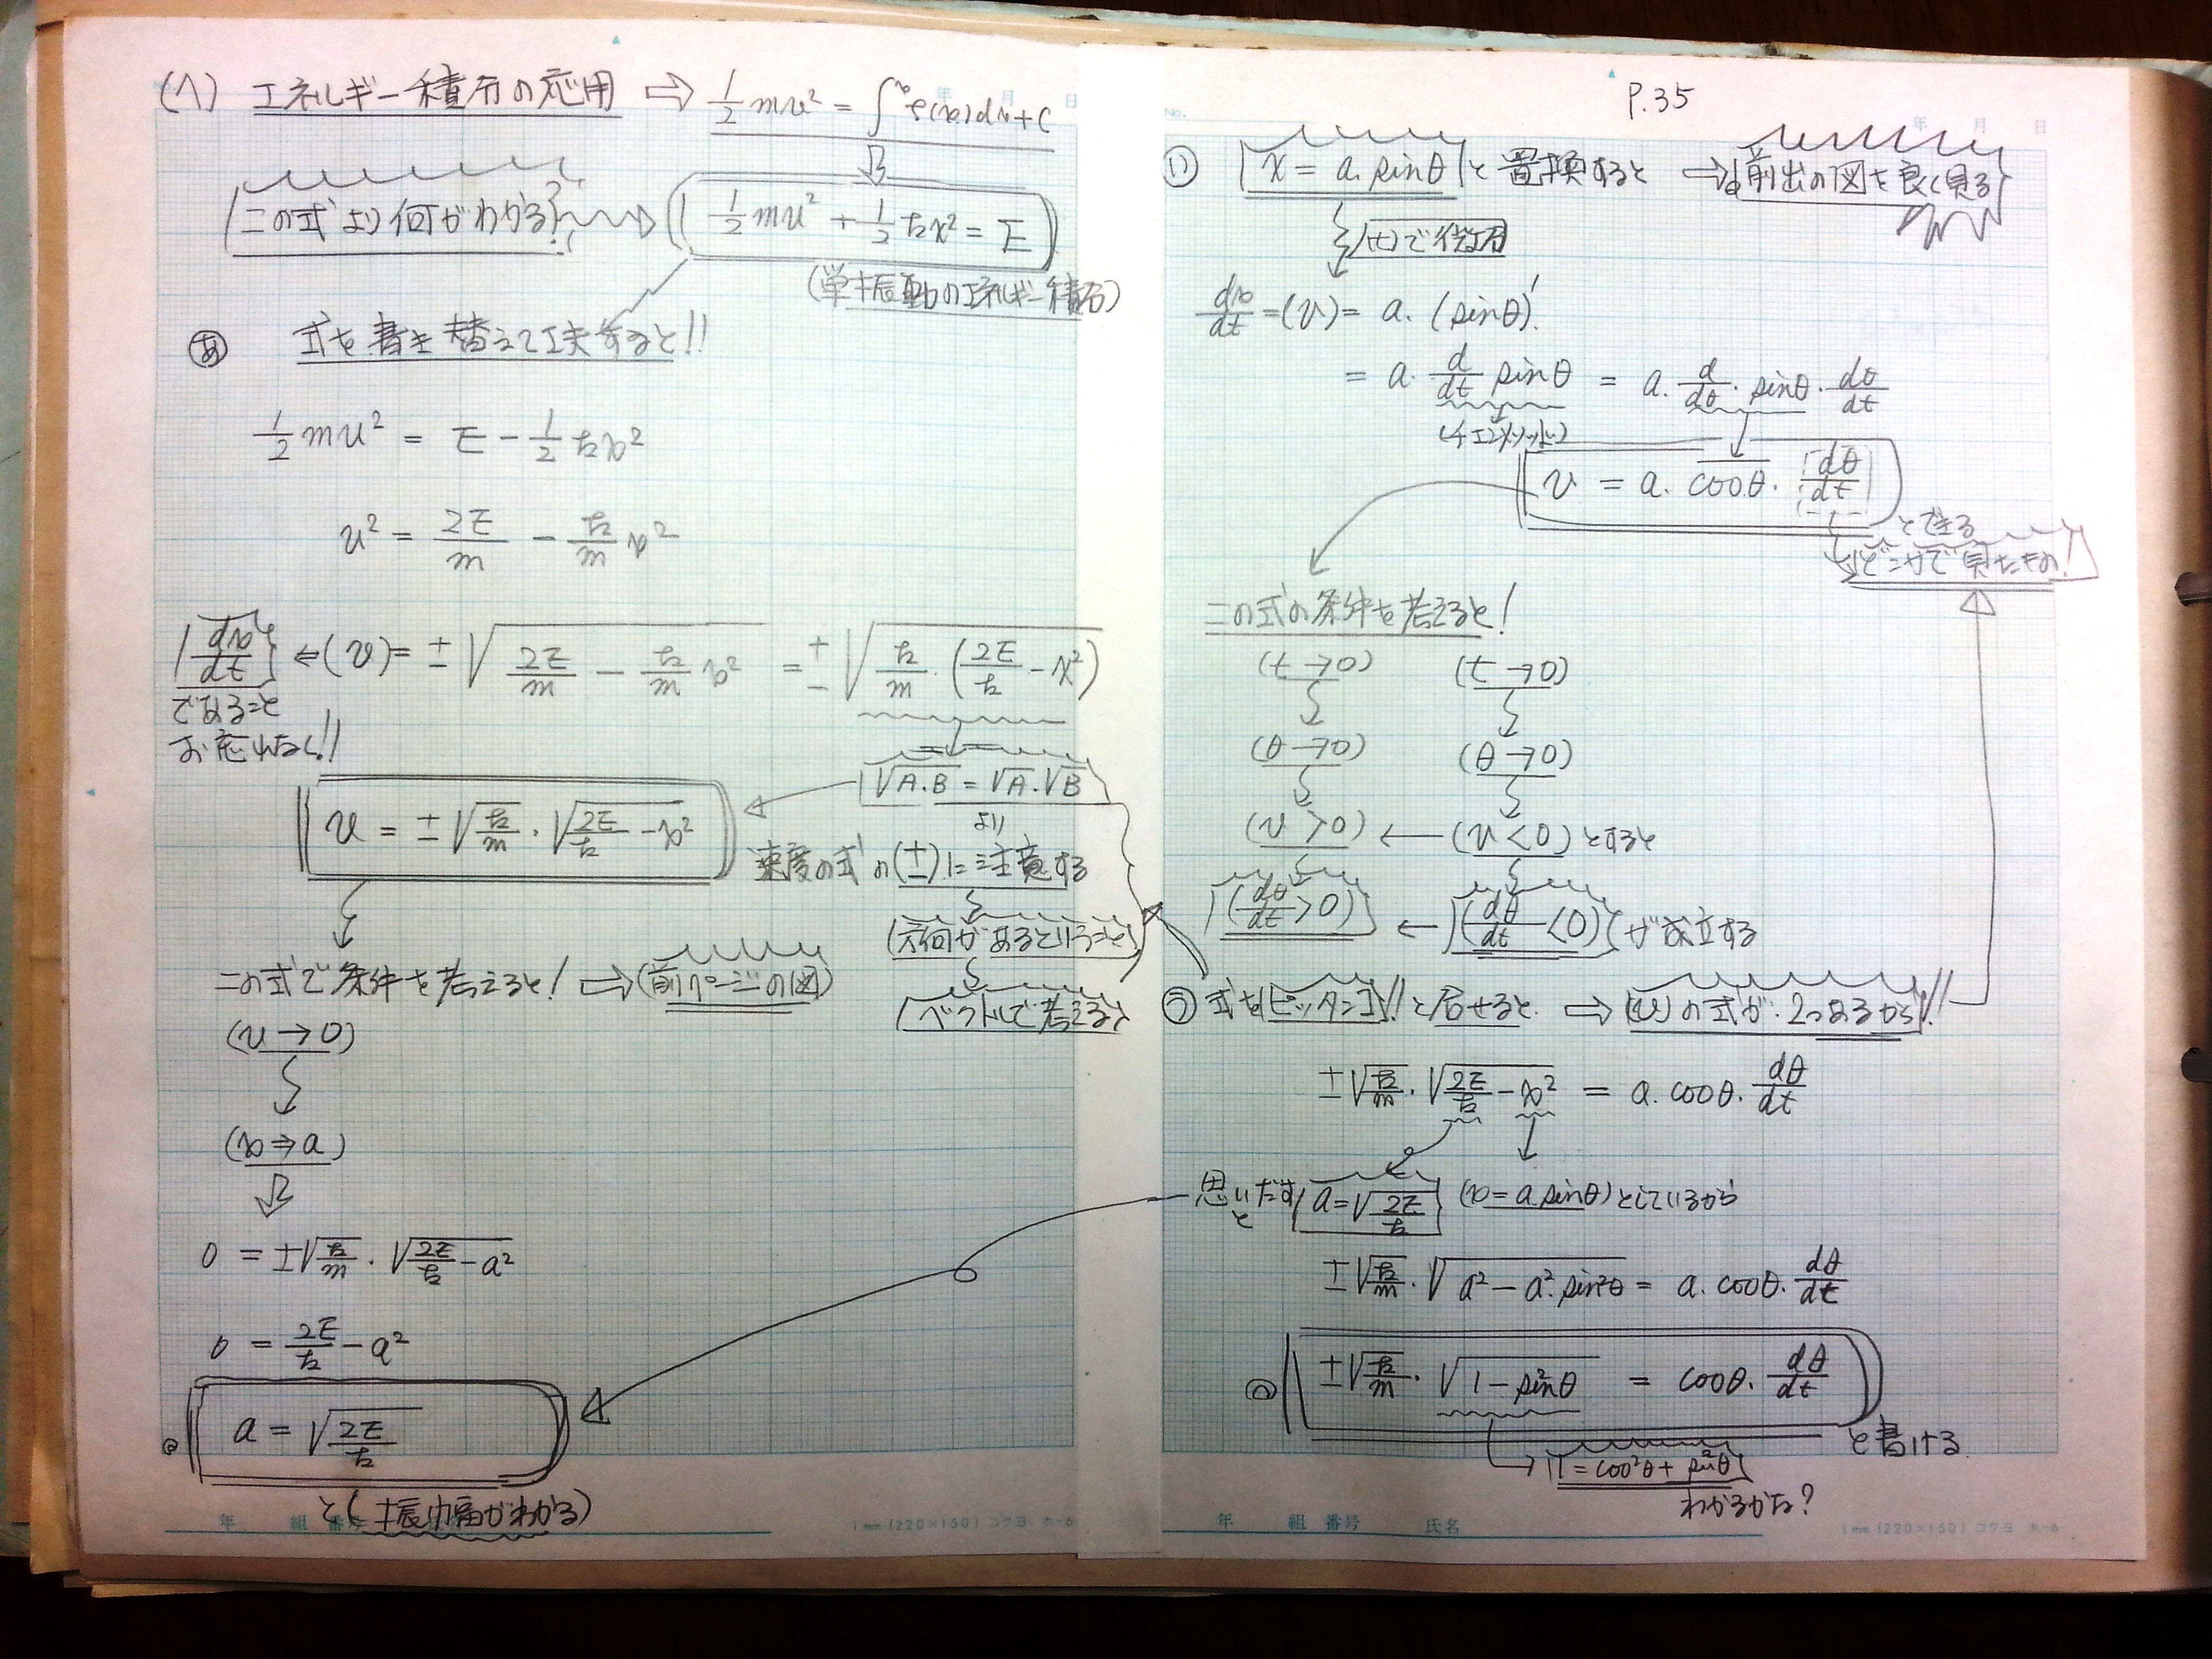 (ヘ) エネルギー積分の応用 ⇨ 1/2 mv² = ∫^x f(x)dx + C
この式より何がわかる? 1/2 mv² + 1/2 kx² = E
(単振動のエネルギー積分)
あ 式を書き替えて工夫すると!!
1/2 mv² = E - 1/2 kx²
v² = 2E/m - k/m x²
dx/dt ⇐ (v) = ±√(2E/m - k/m x²) = ±√(k/m・(2E/k - x²))
であること
お忘れなく!!
√A.B = √A.√B
より
v = ±√(k/m)・√(2E/k - x²)
速度の式の(±)に注意する
(方向があるということ)
(ベクトルで考える)
この式で条件を考えると! ⇨ (前ページの図)
(v → 0)
(x ⇒ a)
0 = ±√(k/m)・√(2E/k - a²)
0 = 2E/k - a²
a = √(2E/k)
と(振巾幅がわかる)
年 組 番号
1mm (220×150) コクヨ ホ-6
P.35
No. 年 月 日
い x = a.sinθ と置換すると ⇨ 前出の図を良く見る
(t)で微分
dx/dt = (v) = a.(sinθ)'
= a. d/dt sinθ = a. d/dθ・sinθ・dθ/dt
v = a.cosθ・dθ/dt
とできる
どこかで見たもの!
この式の条件を考えると!
(t → 0) (t → 0)
(θ → 0) (θ → 0)
(v > 0) ← (v < 0) とすると
(dθ/dt > 0) ← (dθ/dt < 0) が成立する
う 式をピッタンコ!! と合せると ⇨ (v)の式が2つあるから!!
±√(k/m)・√(2E/k - x²) = a.cosθ・dθ/dt
思いだすと a = √(2E/k) (x = a.sinθ)としているから
±√(k/m)・√(a² - a².sin²θ) = a.cosθ・dθ/dt
±√(k/m)・√(1 - sin²θ) = cosθ・dθ/dt
と書ける
1 = cos²θ + sin²θ
わかるかな?
年 組 番号 氏名
1mm (220×150) コクヨ ホ-6